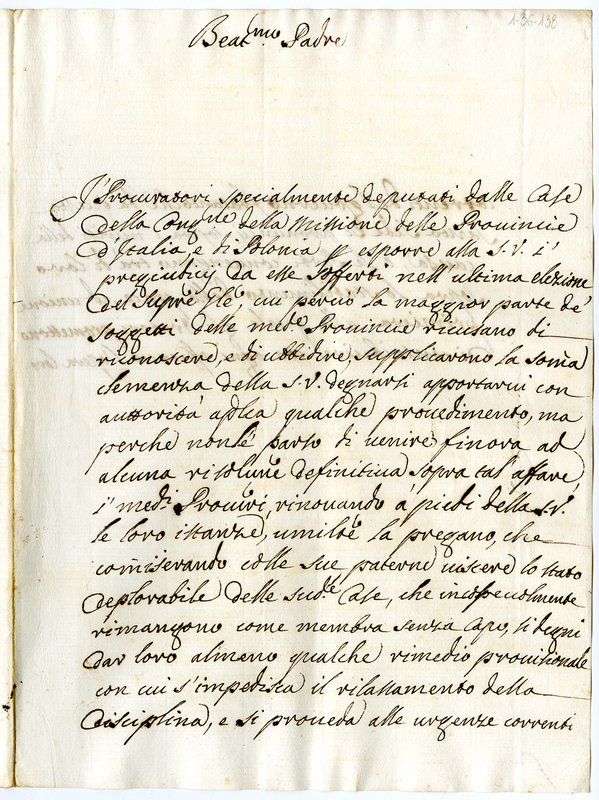 1-36-138
Beat.mo Padre
I' Procuratori specialmente deputati dalle Case
della Cong.ne della Missione delle Provincie
d'Italia e di Polonia p esporre alla S.V. i'
pregiuticij da esse sofferti nell'ultima elezione
del Supre Gle, cui perciò la maggior parte de'
soggetti delle mede Provincie ricusano di
riconoscere, e di ubbidire, supplicarono la soma
clemenza della S.V. degnarsi apportarui con
auttorità aplica qualche prouedimento, ma
perche non l'è parso di uenire finora ad
alcuna risolune definitiua sopra tal'affare,
i' med.i Procuri, rinouando a piedi della S.V.
le loro istanze, umilte la pregano, che
comiserando colle sue paterne uiscere lo stato
deplorabile delle sud.e Case, che incolpeuolmente
rimangono come membra senza Capo, si degni
dar loro almeno qualche rimedio prouisionale
con cui s'impedisca il rilassamento della
disciplina, e si proueda alle urgenze correnti